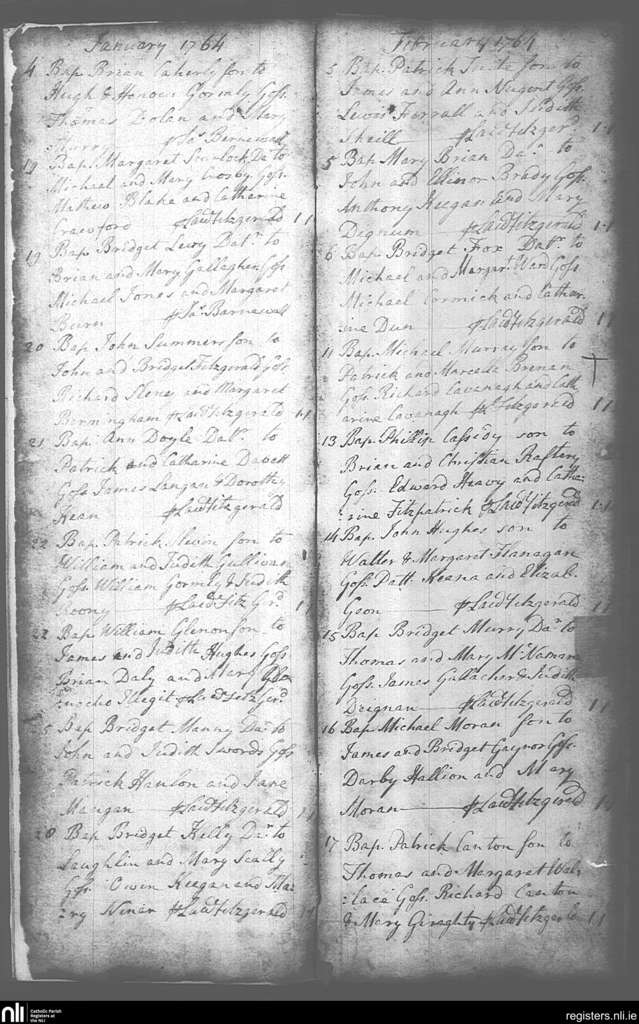 January 1764
4 Bap. Brian Caherly son to
Hugh & Honour Gormly Goss.
Thomas Dolan and Mary
Murry Jas. Barnewall
19 Bap. Margaret Scurlock Dar. to
Michael and Mary Goss.
Mathew Blake and Catharine
Crawford Laud Fitzgerald 1 1
19 Bap. Bridget Leivy Datr. to
Brian and Mary Gallagher Goss
Michael Jones and Margaret
Burn Jas. Barnewall
20 Bap. John Summers son to
John and Bridget Fitzgerald Goss.
Richard and Margaret
Bermingham Laud Fitzgerald 1.1
21 Bap. Ann Doyle Datr. to
Patrick and Catharine
Goss James Langan & Dorothy
Kean Laud Fitzgerald
22 Bap. Patrick son to
William and Judith Gullivan
Goss William Gormly & Judith
Roony Laud. Fitz Grd. 1 1
22 Bap. William Glenon son to
James and Judith Hughes Goss
Brian Daly and Mary
Illegit Laud Fitz Gerd
25 Bap Bridget Manny Dar. to
John and Judith Swords Goss
Patrick Hanlon and Jane
Mangan Laud Fitzgerald 1 1
28 Bap Bridget Kelly Dar. to
Laughlin and Mary Scally
Goss. Owen Keegan and Ma=
=ry Laud. Fitzgerald 1 1
February 1764
5 Bap. Patrick Tuite son to
James and Ann Nugent Goss.
Lewis Farrall and Judith
Skeill Laud Fitzger. 1.1
5 Bap. Mary Brian Dar. to
John and Ellinor Brady Goss.
Anthony Keegan and Mary
Degnum Laud Fitzgerald 1.1
6 Bap. Bridget Fox Datr. to
Michael and Margart. Ward Goss
Michael Cormick and Cathar=
ine Dun Laud Fitzgerald 1 1
11 Bap. Michael Murray son to
Patrick and Marcella Brenan
Goss. Richard Cavanagh and Cath
arine Cavanagh Ld. Fitzgerald 1 1
13 Bap. Phillip Cassidy son to
Brian and Christian Raftery
Goss. Edward Heavy and Catha=
=rine Fitzpatrick Laud Fitzgerd 1.1
14 Bap. John Hughes son to
Walter & Margaret Flanagan
Goss. Patt. Keana and Elizab.
Geon Laud Fitzgerald 1 1
15 Bap Bridget Murry Dar. to
Thomas and Mary McNamara
Goss. James Gallacher & Judith
Diegnan Laud Fitzgerald 1 1
16 Bap. Michael Moran son to
James and Bridget Gaynor Goss.
Darby Hallion and Mary
Moran Laud Fitzgerald 1 1
17 Bap. Patrick Canton son to
Thomas and Margaret Wal=
=lace Goss. Richard Canton
& Mary Giraghty Laud Fitzgerld 1 1
nli
Catholic Parish
Registers at
the NLI
registers.nli.ie